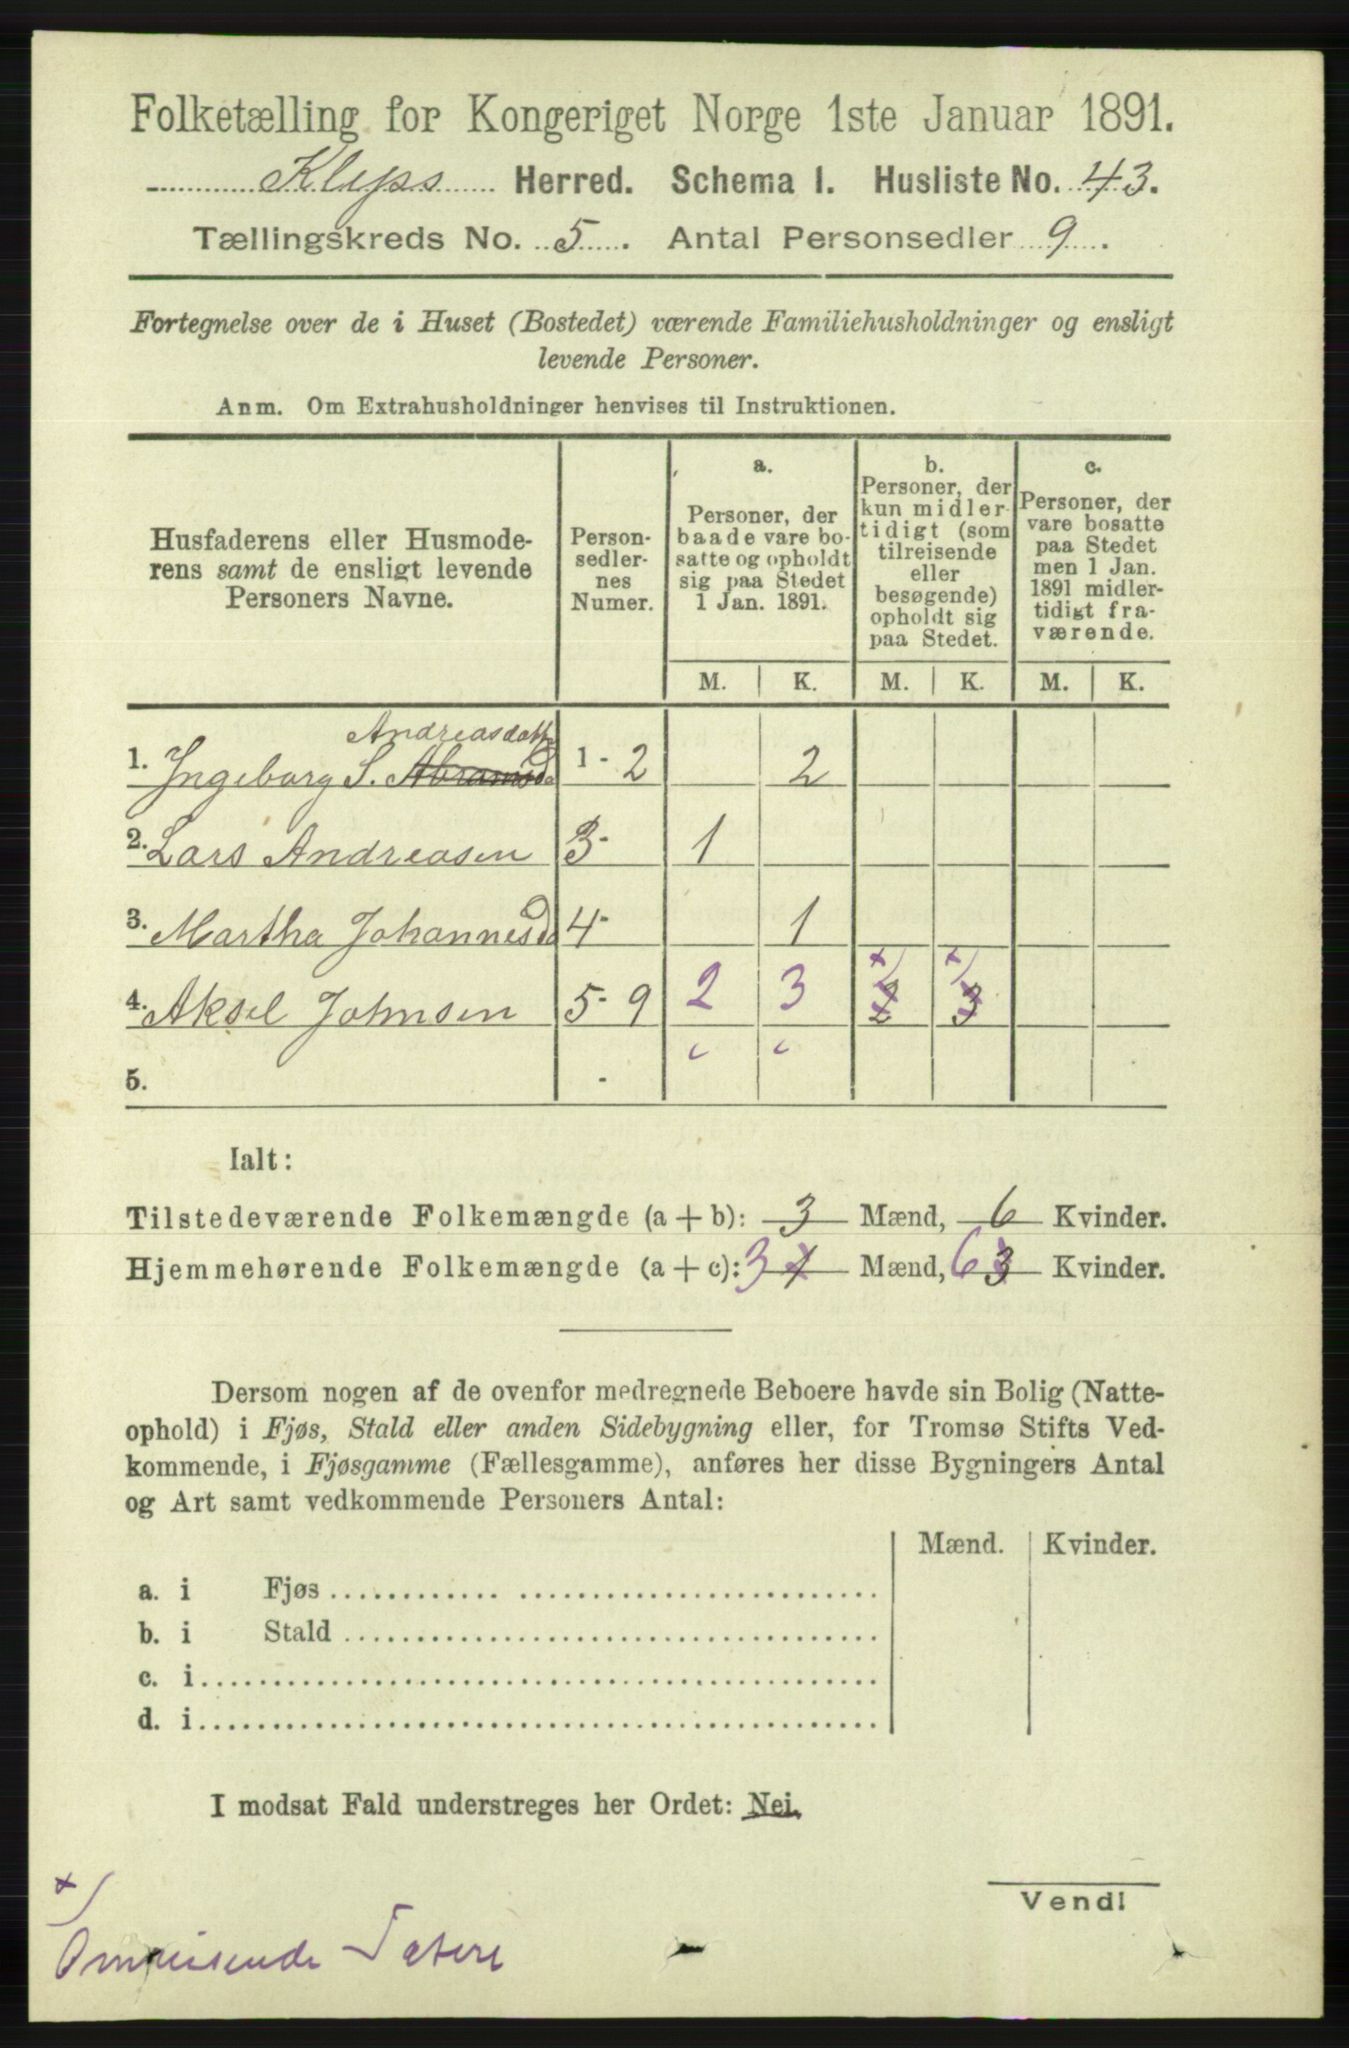 Folketælling for Kongeriget Norge 1ste Januar 1891.
Klepps Herred. Schema I. Husliste No. 43.
Tællingskreds No. 5. Antal Personsedler 9.
Fortegnelse over de i Huset (Bostedet) værende Familiehusholdninger og ensligt
levende Personer.
Anm. Om Extrahusholdninger henvises til Instruktionen.
Husfaderens eller Husmode-
rens samt de ensligt levende
Personers Navne.
Person-
sedler-
nes
Numer.
a.
Personer, der
baade vare bo-
satte og opholdt
sig paa Stedet
1 Jan. 1891.
b.
Personer, der
kun midler-
tidigt (som
tilreisende
eller
besøgende)
opholdt sig
paa Stedet.
c.
Personer, der
vare bosatte
paa Stedet
men 1 Jan.
1891 midler-
tidigt fra-
værende.
M. K. M. K. M. K.
Andreasdatt
1. Ingeborg S. Abramsd 1 - 2 2
2. Lars Andreasen 3 - 1
3. Martha Johannesd 4 - 1
x) x)
4. Aksel Johnsen 5 - 9 2 3 2 3
5. -
Ialt:
Tilstedeværende Folkemængde (a + b): 3 Mænd, 6 Kvinder.
Hjemmehørende Folkemængde (a + c): 3 1 Mænd, 6 3 Kvinder.
Dersom nogen af de ovenfor medregnede Beboere havde sin Bolig (Natte-
ophold) i Fjøs, Stald eller anden Sidebygning eller, for Tromsø Stifts Ved-
kommende, i Fjøsgamme (Fællesgamme), anføres her disse Bygningers Antal
og Art samt vedkommende Personers Antal:
Mænd. Kvinder.
a. i Fjøs
b. i Stald
c. i
d. i
I modsat Fald understreges her Ordet: Nei.
Vend!
x)
Omreisende Tatere